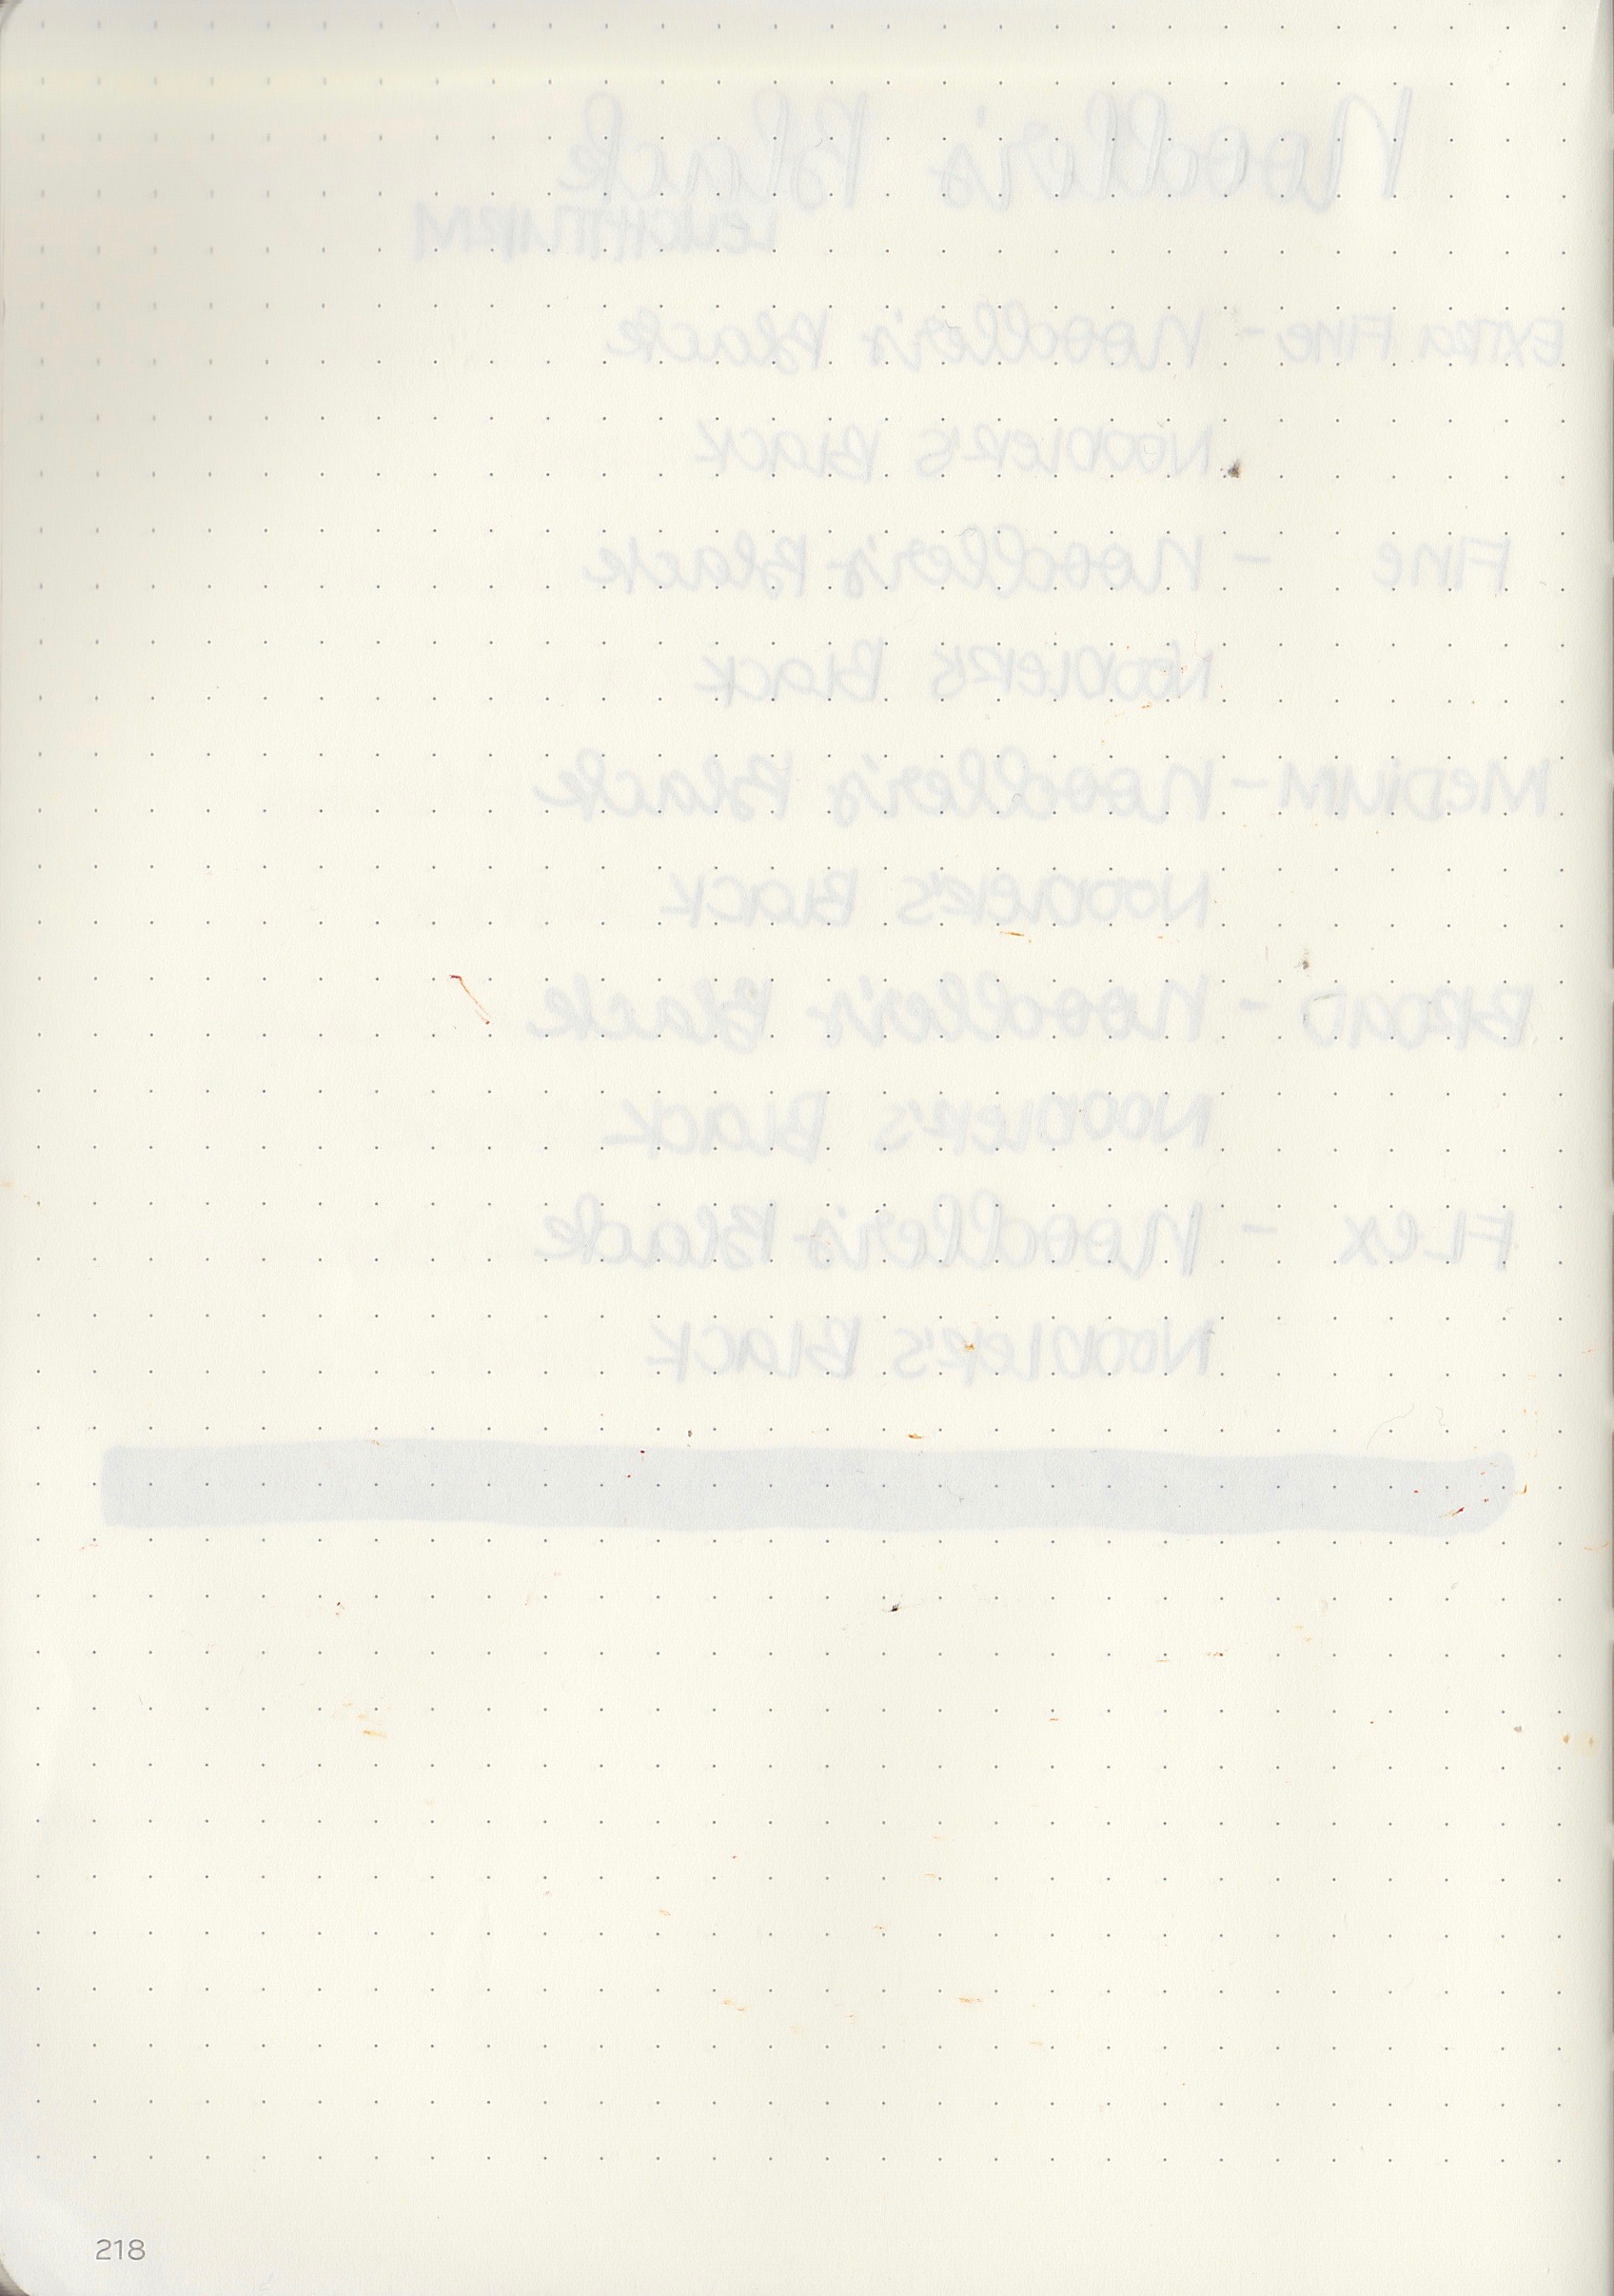 Noodler's Black
LEUCHTTURM
EXTRA FINE - Noodler's Black
NOODLER'S BLACK
FINE - Noodler's Black
NOODLER'S BLACK
MEDIUM - Noodler's Black
NOODLER'S BLACK
BROAD - Noodler's Black
NOODLER'S BLACK
FLEX - Noodler's Black
NOODLER'S BLACK
218